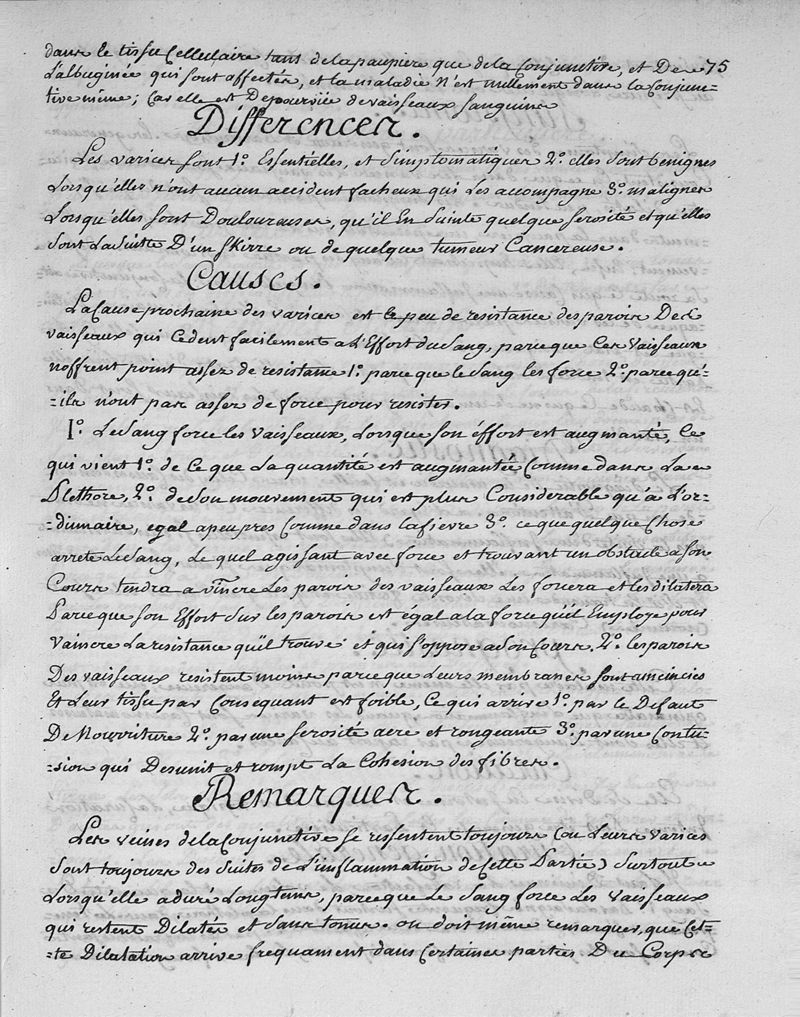 dans le tissu Cellulaire tant de la paupiere que de la Conjunctive, et De 75
L'albuginée qui sont affectés, et la maladie N'est nullement dans la Conjun-
tive même; Car elle est Depourvüe de vaisseaux sanguins
Differences.
Les varices sont 1º. Essentielles, et Simptomatiques 2º. elles sont benignes
Lorsqu'elles n'ont aucun accident facheux qui Les accompagne 3º. malignes
Lorsqu'elles sont Douloureuses, qu'il En Suinte quelque serosité et qu'elles
sont La Suitte D'un skirre ou de quelque tumeur Cancereuse.
Causes.
La Cause prochaine des varices est le peu de resistance des parois Des
vaisseaux qui Cedent facilement a L'Effort du Sang, parce que Ces Vaisseaux
n'offrent point assez de resistance 1º. parce que le Sang les force 2º. parce qu'-
-ils n'ont pas assez de force pour resister.
1º. Le Sang force les Vaisseaux, Lorsque son éffort est augmanté, Ce
qui vient 1º. de Ce que La quantité est augmantée Comme dans La
Plethore, 2º. de Son mouvement qui est plus Considerable qu'a L'or-
-dinnaire, egal a peu pres Comme dans la fievre 3º. ce que quelque Chose
arrete Le Sang, Le quel agissant avec force et trouvant un obstacle a son
Cours tendra a vincre Les parois des vaisseaux Les forcera et les dilatera
Parce que son Effort Sur les parois est égal a la force qu'il Employe pour
Vaincre La resistance qu'il trouve et qui s'oppose a Son Cours, 2º. les parois
Des vaisseaux resistent moins parce que Leurs membranes sont amincies
Et Leur tissu par Consequant est foible, Ce qui arrive 1º. par le Defaut
De Nourriture 2º. par une serosité acre et rongeante 3º. par une Contu-
-sion qui Desunit et rompt La Cohesion des fibres.
Remarques.
Les veines de la Conjunctive se ressentent toujours (ou Leurs varices
Sont toujours des Suites de L'inflammation de Cette Partie) Surtout
Lorsqu'elle a duré Longtems, parce que Le Sang force Les Vaisseaux
qui restent Dilatés et Sans tonus. on doit même remarquer, que Cet-
-te Dilatation arrive frequament dans Certaines parties Du Corps